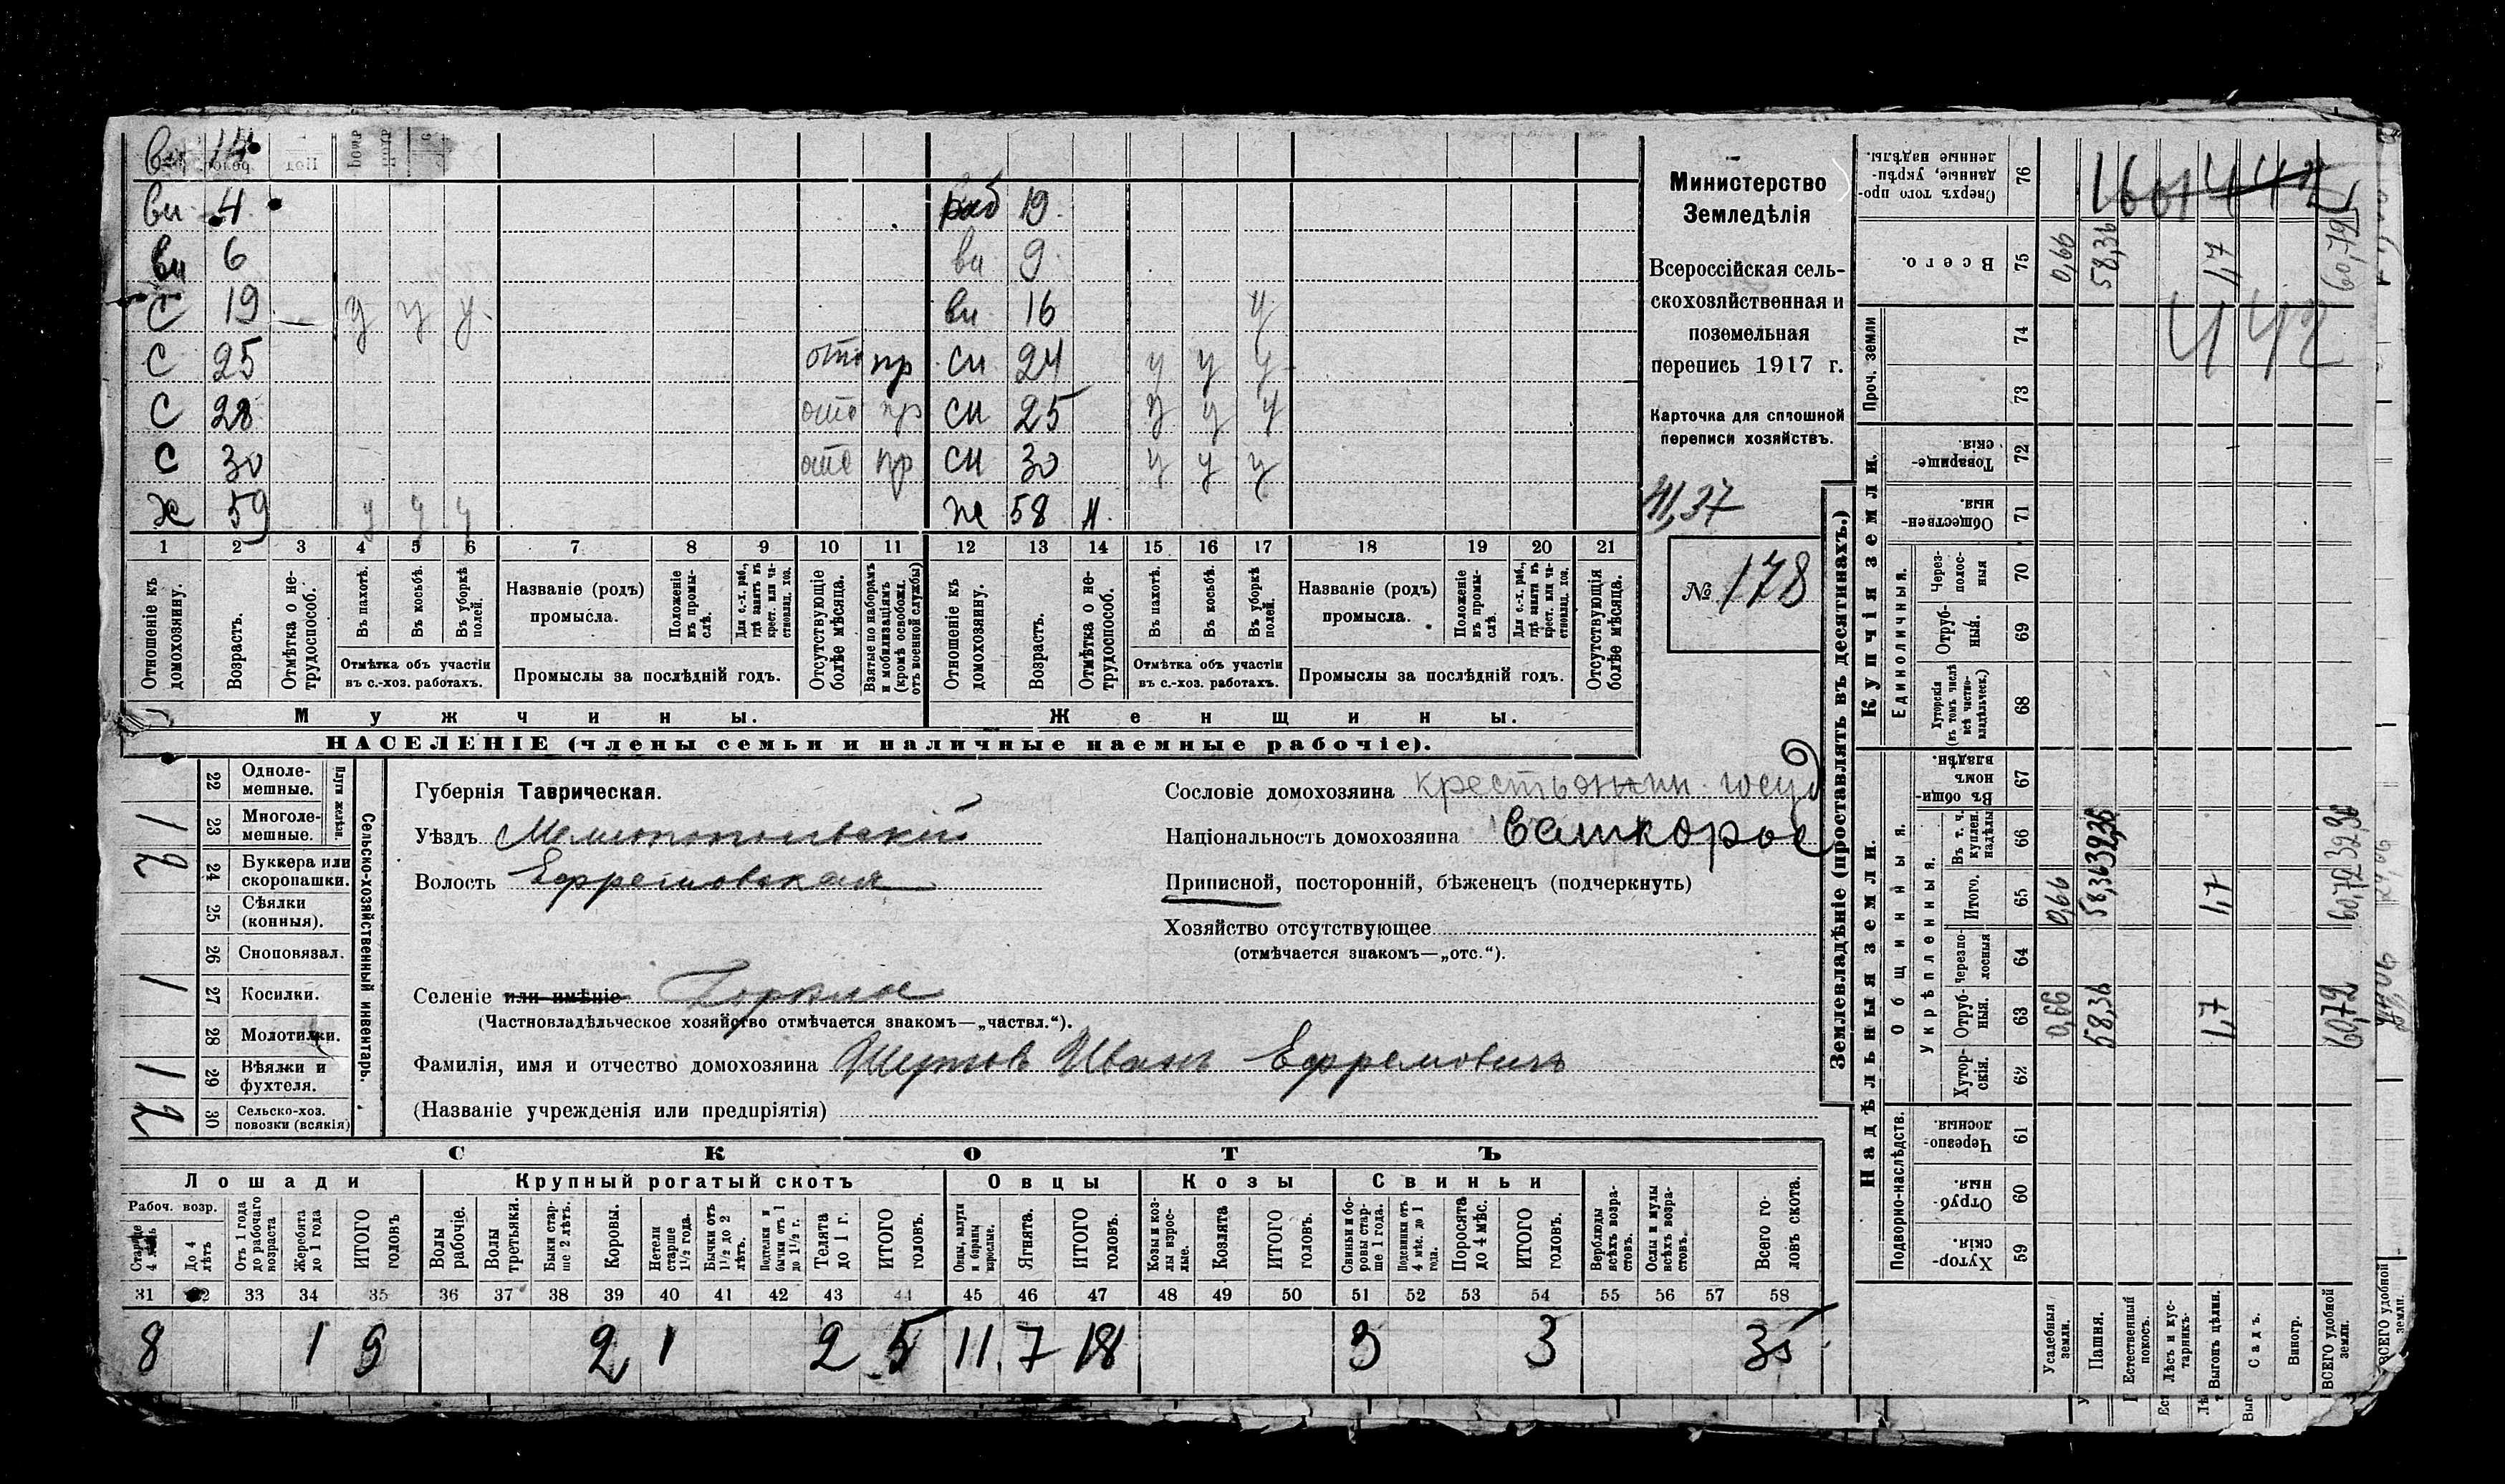 ви 14
ви 4 раб 19
ви 6 ви 9
С 19 у у у ви 16 у
С 25 отс пр сн 24 у у у
С 28 отс пр сн 25 у у у
С 30 отс пр сн 30 у у у
Ж 59 у у у Ж 58 н
1 2 3 4 5 6 7 8 9 10 11 12 13 14 15 16 17 18 19 20 21
Отношеніе къ домохозяину.
Возрастъ.
Отмѣтка о не-трудоспособ.
Въ пахотѣ.
Въ косьбѣ.
Въ уборкѣ полей.
Отмѣтка объ участіи
въ с.-хоз. работахъ.
Названіе (родъ)
промысла.
Положеніе въ промы-слѣ.
Для с.-х. раб., гдѣ занятъ въ крест. или ча-стновлад. хоз.
Промыслы за послѣдній годъ.
Отсутствующіе болѣе мѣсяца.
Взятые по наборамъ и мобилизаціямъ (кромѣ освобожд. отъ военной службы)
Отношеніе къ домохозяину.
Возрастъ.
Отмѣтка о не-трудоспособ.
Въ пахотѣ.
Въ косьбѣ.
Въ уборкѣ полей.
Отмѣтка объ участіи
въ с.-хоз. работахъ.
Названіе (родъ)
промысла.
Положеніе въ промы-слѣ.
Для с.-х. раб., гдѣ занята въ крест. или ча-стновлад. хоз.
Промыслы за послѣдній годъ.
Отсутствующія болѣе мѣсяца.
Мужчины.
Женщины.
НАСЕЛЕНІЕ (члены семьи и наличные наемные рабочіе).
Министерство
Земледѣлія
Всероссійская сель-
скохозяйственная и
поземельная
перепись 1917 г.
Карточка для сплошной
переписи хозяйствъ.
41,37
№ 178
Сельско-хозяйственный инвентарь.
Плуги желѣзн.
22 Одноле-мешные.
1 23 Многоле-мешные.
2 24 Буккера или скоропашки.
25 Сѣялки (конныя).
26 Сноповязал.
1 27 Косилки.
28 Молотилки.
1 29 Вѣялки и фухтеля.
2 30 Сельско-хоз. повозки (всякія)
Губернія Таврическая.
Уѣздъ Мелитопольскій
Волость Ефремовская
Селеніе или имѣніе Горькое
(Частновладѣльческое хозяйство отмѣчается знакомъ—„частвл.“).
Фамилія, имя и отчество домохозяина Шутов Иван Ефремовичъ
(Названіе учрежденія или предпріятія)
Сословіе домохозяина крестьянин. госуд
Національность домохозяина великорос
Приписной, посторонній, бѣженецъ (подчеркнуть)
Хозяйство отсутствующее
(отмѣчается знакомъ—„отс.“).
СКОТЪ
Лошади Крупный рогатый скотъ Овцы Козы Свиньи
Рабоч. возр.
Старше 4 лѣтъ
До 4 лѣтъ
Отъ 1 года до рабочаго возраста
Жеребята до 1 года
ИТОГО головъ
Волы рабочіе.
Волы третьяки.
Быки стар-ше 2 лѣтъ.
Коровы.
Нетели старше 1½ года.
Бычки отъ 1½ до 2 лѣтъ.
Подтелки и бычки отъ 1 до 1½ г.
Телята до 1 г.
ИТОГО головъ.
Овцы, валухи и бараны взрослые.
Ягнята.
ИТОГО головъ.
Козы и коз-лы взрос-лые.
Козлята
ИТОГО головъ.
Свиньи и бо-ровы стар-ше 1 года.
Подсвинки отъ 4 мѣс. до 1 года.
Поросята до 4 мѣс.
ИТОГО головъ.
Верблюды всѣхъ возра-стовъ.
Ослы и мулы всѣхъ возра-стовъ.
Всего го-ловъ скота.
31 32 33 34 35 36 37 38 39 40 41 42 43 44 45 46 47 48 49 50 51 52 53 54 55 56 57 58
8 1 9 2 1 2 5 11 7 18 3 3 35
Землевладѣніе (проставлять въ десятинахъ.)
Надѣльныя земли.
Купчія земли.
Проч. земли
Подворно-наслѣдств.
Общинныя.
Укрѣпленныя.
Единоличныя.
76 Сверхъ того про-данные, укрѣп-ленные надѣлы.
75 Всего. 0,66 58,36 1,7 60,72
74
73
72 Товарище-скія.
71 Обществен-ныя.
70 Через-полос-ныя
69 Отруб-ныя.
68 Хуторскія (въ томъ числѣ всѣ частно-владѣльческ.)
67 Въ общин-номъ владѣн.
66 Въ т. ч. куплен. надѣлы 32,36 32,36
65 Итого. 0,66 58,36 1,7 60,72
64 Черезпо-лосныя
63 Отруб-ныя. 0,66 58,36 1,7 60,72
62 Хутор-скія.
61 Черезпо-лосныя
60 Отруб-ныя.
59 Хутор-скія.
Усадебныя земли.
Пашня.
Естественный покосъ.
Лѣсъ и кус-тарникъ.
Выгонъ цѣлин.
Садъ.
Виногр.
ВСЕГО удобной земли.
ВСЕГО удобной земли.